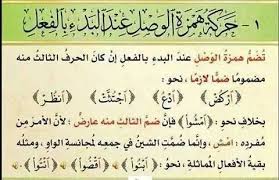 ١ - حَرَكَةُ هَمْزَةِ الْوَصْلِ عِنْدَ الْبَدْءِ بِالْفِعْلِ
تُضَمُّ هَمْزَةُ الْوَصْلِ عِنْدَ الْبَدْءِ بِالْفِعْلِ إِنْ كَانَ الْحَرْفُ الثَّالِثُ مِنْهُ
مَضْمُومًا ضَمًّا لَازِمًا، نَحْوُ:
﴿ اُرْكُضْ ﴾ ﴿ اُدْعُ ﴾ ﴿ اُجْتُثَّتْ ﴾ ﴿ اُنظُرْ ﴾
بِخِلَافِ نَحْوِ: ﴿ اِمْشُواْ ﴾ فَإِنَّ ضَمَّ الثَّالِثِ مِنْهُ عَارِضٌ: لِأَنَّ الْأَمْرَ مِنْ
مُفْرَدِهِ: اِمْشِ، وَإِنَّمَا ضُمَّتِ الشِّينُ فِي جَمْعِهِ لِمُجَانَسَةِ الْوَاوِ، وَمِثْلُهُ
بَقِيَّةُ الْأَفْعَالِ الْمُمَاثِلَةِ، نَحْوُ: ﴿ اِبْنُواْ ﴾ ﴿ اِقْضُواْ ﴾ ﴿ اِئْتُواْ ﴾.